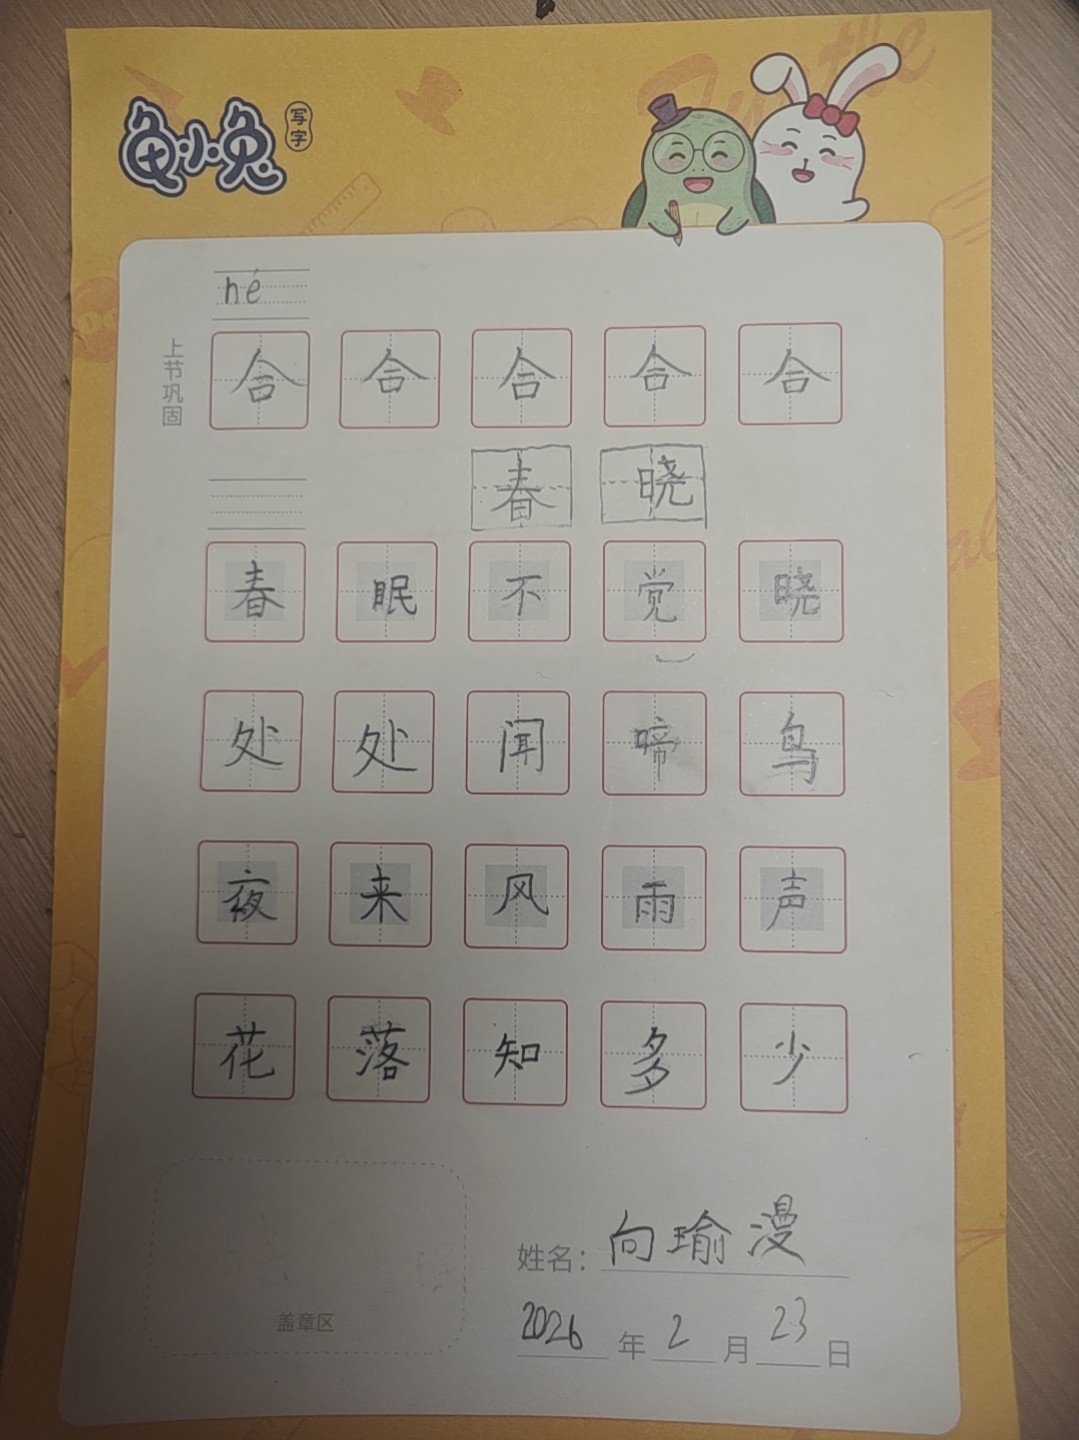 龟小兔 写字
hé
上节巩固
合 合 合 合 合
春 晓
春 眠 不 觉 晓
处 处 闻 啼 鸟
夜 来 风 雨 声
花 落 知 多 少
姓名: 向瑜漫
2026 年 2 月 23 日
盖章区